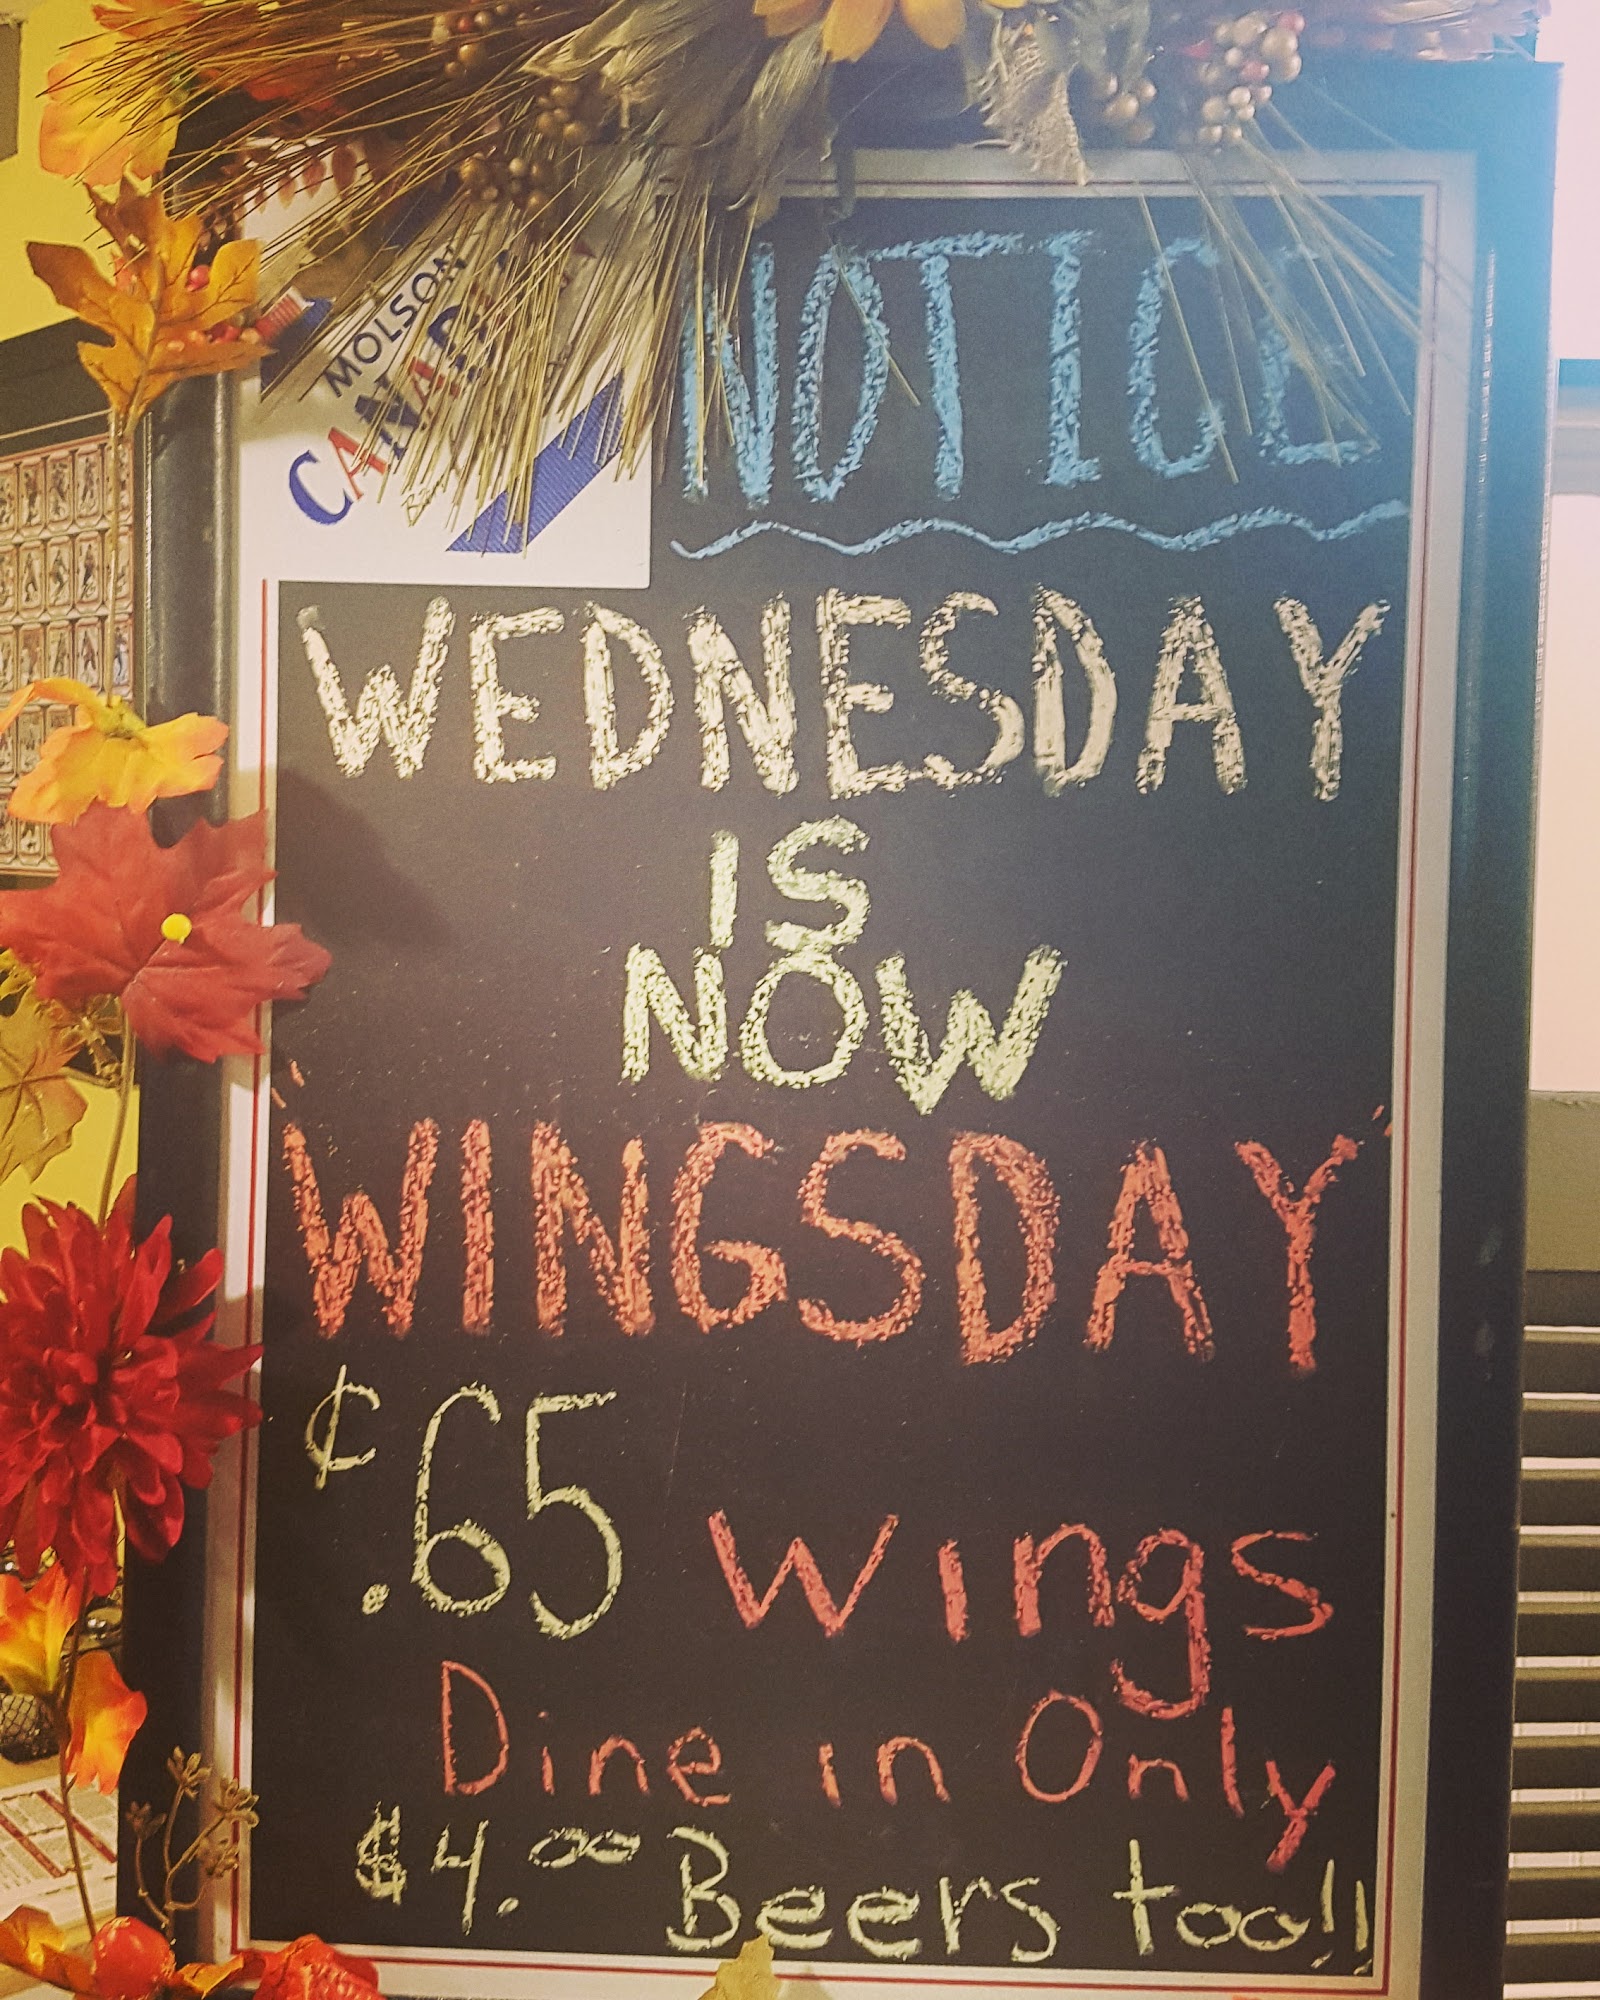 MOLSON
CANADIAN
NOTICE
WEDNESDAY
IS
NOW
"WINGSDAY"
¢.65 Wings
Dine in Only
$4.00 Beers too!!